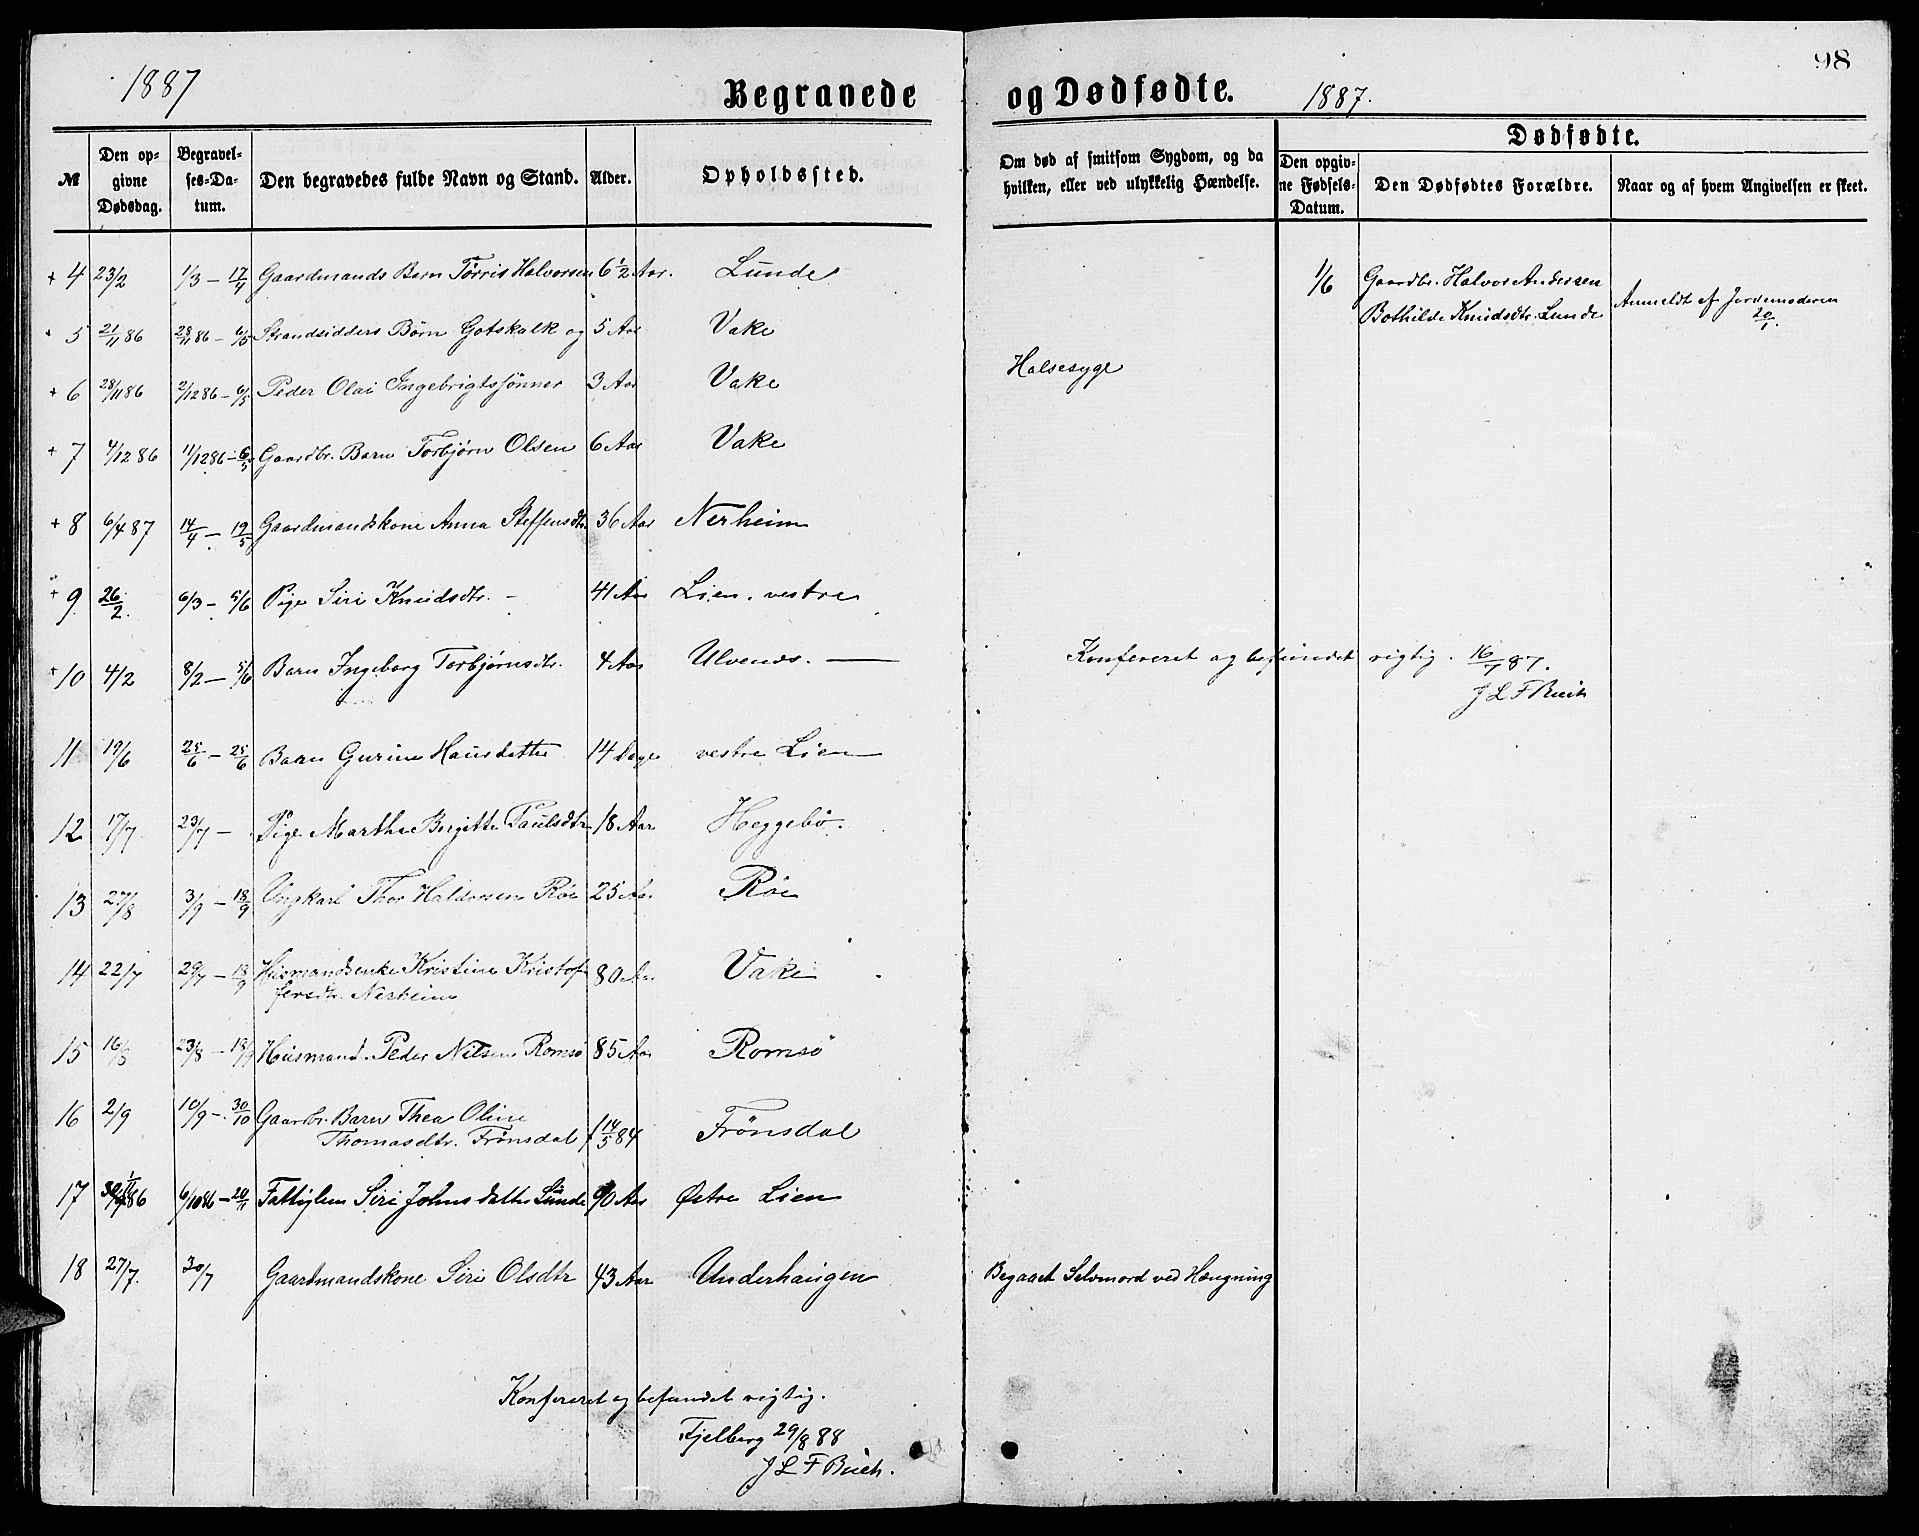 1887
Begravede
№
Den opgivne Dødsdag.
Begravelses-Datum.
Den begravedes fulde Navn og Stand.
Alder.
Opholdssted.
+ 4 23/2 1/3 – 17/4 Gaardmands Barn Tørris Halvorsen 6 1/2 Aar. Lunde
+ 5 21/11 86 28/11 86 – 6/5 Strandsidders Børn Gotskalk og 5 Aar Vake
+ 6 28/11 86 2/12 86 – 6/5 Peder Olai Ingebrigtssønner 3 Aar Vake
+ 7 4/12 86 11/12 86 – 6/5 Gaardbr. Barn Torbjørn Olsen 6 Aar Vake
+ 8 6/4 87 14/4 – 19/5 Gaardmandskone Anna Steffensdtr 36 Aar Nerheim
+ 9 26/2 6/3 – 5/6 Pige Siri Knudsdtr. 41 Aar Lien, vestre
+ 10 4/2 8/2 – 5/6 Barn Ingeborg Torbjørnsdtr. 4 Aar
11 19/6 25/6 – 25/6 Barn Gurine Hansdatter 14 Dage vestre Lien
12 17/7 23/7 – Pige Marthe Bergitte Paulsdtr 18 Aar Heggebø.
13 27/8 3/9 – 18/9 Ungkarl Thor Halvorsen Røe 25 Aar Røe
14 22/7 29/7 – 18/9 Husmandsenke Kristine Kristof
fersdtr. Nerheim 80 Aar Vake
15 16/8 23/8 – 18/9 Husmand Peder Nilsen Romsø 85 Aar Romsø
16 2/9 10/9 – 30/10 Gaardbr. Barn Thea Oline
Thomasdtr. Frönsdal f 14/5 84 Frönsdal
17 86 6/10 86 – 20/11 Fattiglem Siri Johnsdatter Lunde 90 Aar Østre Lien
18 27/7 30/7 Gaardmandskone Siri Olsdtr 43 Aar Underhaugen
Konfereret og befundet rigtig.
Fjelberg 29/8 88
J L F Buch.
98
og Dødfødte.
1887.
Om død af smitsom Sygdom, og da hvilken, eller ved ulykkelig Hændelse.
Dødfødte.
Den opgivne Fødsels-Datum.
Den Dødfødtes Forældre.
Naar og af hvem Angivelsen er skeet.
1/6 Gaardbr. Halvor Andersen
Bothilde Knudsdtr. Lunde
Anmeldt af Jordemoderen
20/1.
Halsesyge
Konfereret og befundet rigtig. 16/7 87.
J L F Buch
Begaaet Selvmord ved Hængning